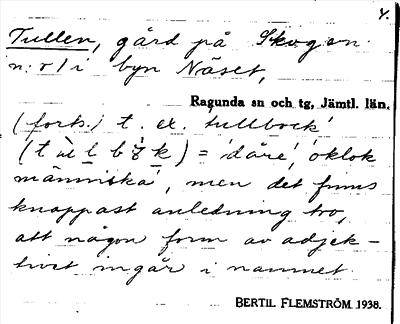 4.
Tullen, gård på Skogen
n:r 1 i byn Näset,
Ragunda sn och tg, Jämtl. län.
(forts.) t. ex. tullbock'
= 'dåre', 'oklok
människa', men det finns
knappast anledning tro,
att någon form av adjek-
tivet ingår i namnet.
BERTIL FLEMSTRÖM 1938.